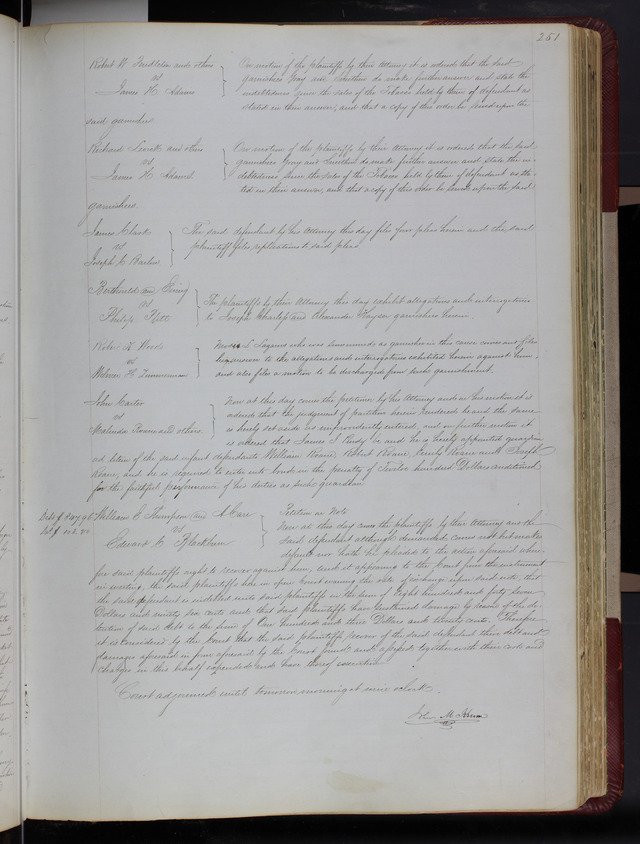 251
Robert W. Pendleton and others
vs
James H. Adams
On motion of the plaintiffs by their Attorney it is ordered that the said
garnishees Gay and Smithers do make further answer and state the
indebtedness from the sales of the Tobacco held by them of defendant as
stated in their answer, and that a copy of this order be served upon the
said garnishees.
Richard and others
vs
James H. Adams
On motion of the plaintiffs by their Attorney it is ordered that the said
garnishees Gay and Smithers do make further answer and state the in-
debtedness from the sales of the Tobacco held by them of defendant as sta-
ted in their answer, and that a copy of this order be served upon the said
garnishees.
James Clark
vs
Joseph C. Barlow
The said defendant by his Attorney this day files four pleas herein and the said
plaintiff files replications to said pleas
and
vs
Philip
The plaintiffs by their Attorney this day exhibit allegations and interrogatories
to Joseph Charless and Alexander Kayser garnishees herein.
Robt. Woods
vs
Wilmer H. Zimmerman
who was summoned as garnishee in this cause comes and files
his answer to the allegations and interrogatories exhibited herein against him,
and also files a motion to be discharged from such garnishment.
John Carter
vs
Malinda Roane and others
Now at this day comes the petitioner by his Attorney and on his motion it is
ordered that the judgment of partition herein rendered be and the same
is hereby set aside as improvidently entered, and on further motion it
is ordered that James S. be and he is hereby appointed guardian
ad litem of the said infant defendants William Roane, Robert Roane, Roane and Joseph
Roane, and he is required to enter into bond in the penalty of Twelve hundred Dollars conditioned
for the faithful performance of his duties as such guardian.
William E. Thompson and
vs
Edward C. Blackburn
Petition in Note
Now at this day come the plaintiffs by their Attorney and the
said defendant although demanded comes not but makes
default nor hath he pleaded to the action aforesaid where-
fore said plaintiffs ought to recover against him, and it appearing to the Court from the instrument
in writing, the said plaintiffs also in open Court waiving the rate of exchange upon said note, that
the said defendant is indebted unto said plaintiffs in the sum of Eight hundred and forty seven
Dollars and ninety six cents and that said plaintiffs have sustained damage by reason of the de-
tention of said debt to the sum of One hundred and three Dollars and twenty cents. Therefore
it is considered by the Court that the said plaintiffs recover of the said defendant their debt and
damages aforesaid in form aforesaid by the Court found and assessed together with their costs and
charges in this behalf expended and have thereof execution.
Court adjourned until tomorrow morning at nine o'clock.
John M. Krum